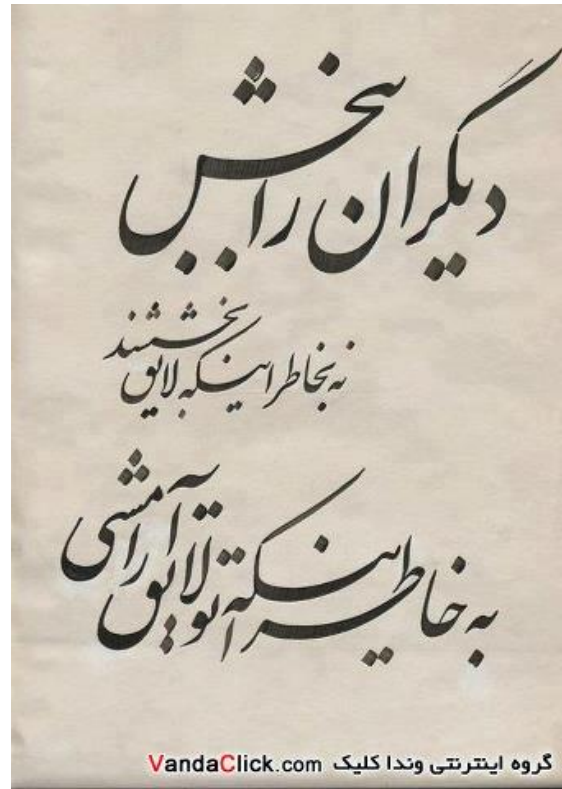 دیگران را ببخش
نه بخاطر اینکه لایق بخششند
به خاطر اینکه تو لایق آرامشی
گروه اینترنتی وندا کلیک VandaClick.com